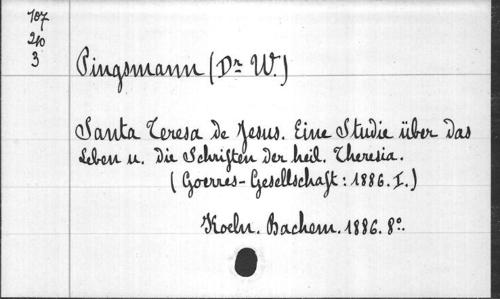 707
210
3
Pingsmann (Dr W.)
Santa Teresa de Jesus. Eine Studie über das
Leben u. die Schriften der heil. Theresia.
(Goerres-Gesellschaft: 1886. I.)
Koeln. Bachem. 1886. 8º.